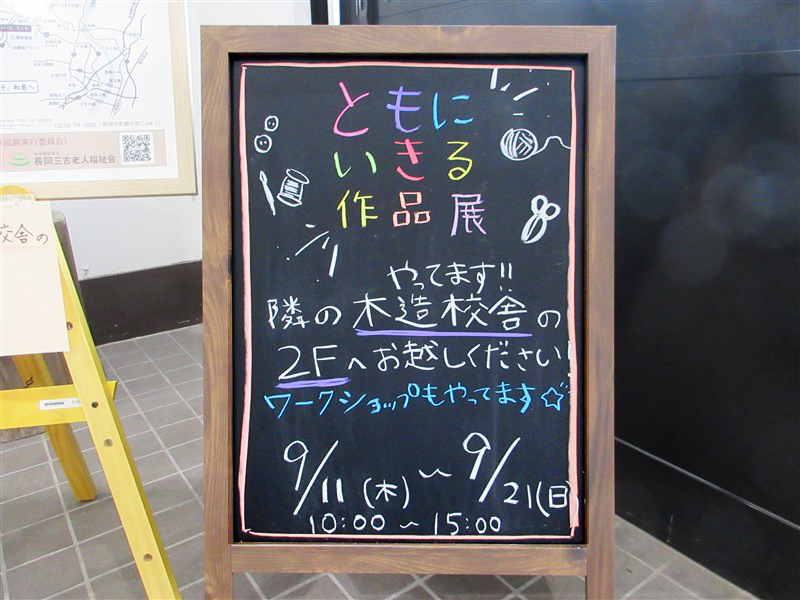 ともに
いきる
作品展
やってます!!
隣の木造校舎の
2Fへお越しください!
ワークショップもやってます☆
9/11(木)~9/21(日)
10:00~15:00
品展実行委員会)
長岡三古老人福祉会
校舎の